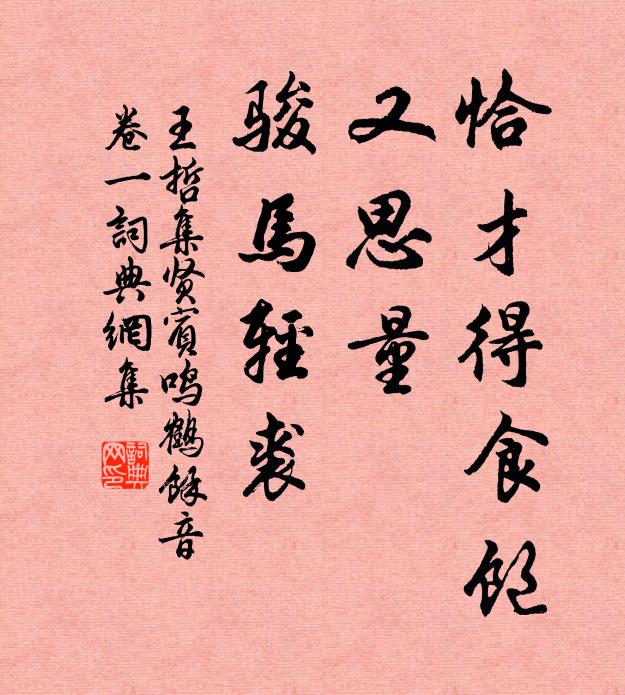 恰才得食飽
又思量
駿馬輕裘
王哲集贤賓鳴鶴餘音
卷一詞典網集
詞典网印